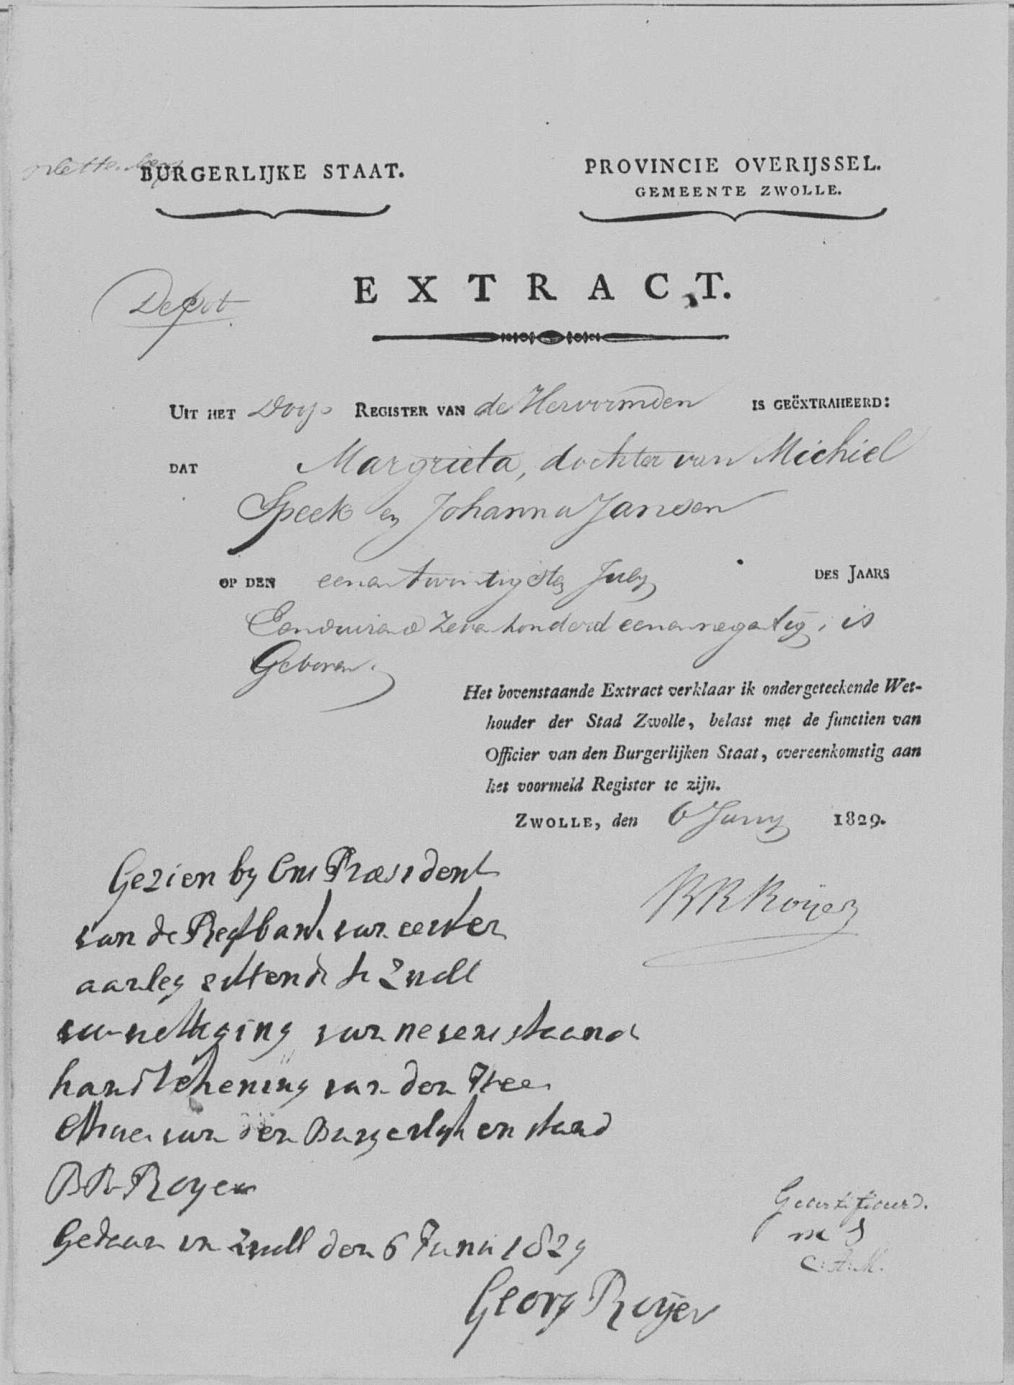 BURGERLIJKE STAAT.
PROVINCIE OVERIJSSEL.
GEMEENTE ZWOLLE.
Depot
EXTRACT.
UIT HET Doop REGISTER VAN de Hervormden IS GEËXTRAHEERD:
DAT Margrieta, dochter van Michiel
Speek en Johanna Jansen
OP DEN eenentwintigste July DES JAARS
Eenduizend Zevenhonderd eenennegentig, is
Geboren.
Het bovenstaande Extract verklaar ik ondergeteekende Wet-
houder der Stad Zwolle, belast met de functien van
Officier van den Burgerlijken Staat, overeenkomstig aan
het voormeld Register te zijn.
ZWOLLE, den 6 Juny 1829.
Gezien by Ons Præsident
van de Regtbank van eerster
aanleg zittende te Zwoll
van nevenstaand
handtekening van den Heer
van den Burgerlyken staad
B R Royer
Gedaan in Zwoll den 6 Juni 1829
B R Roijer
Georg Roijer
Gecertifieerd.